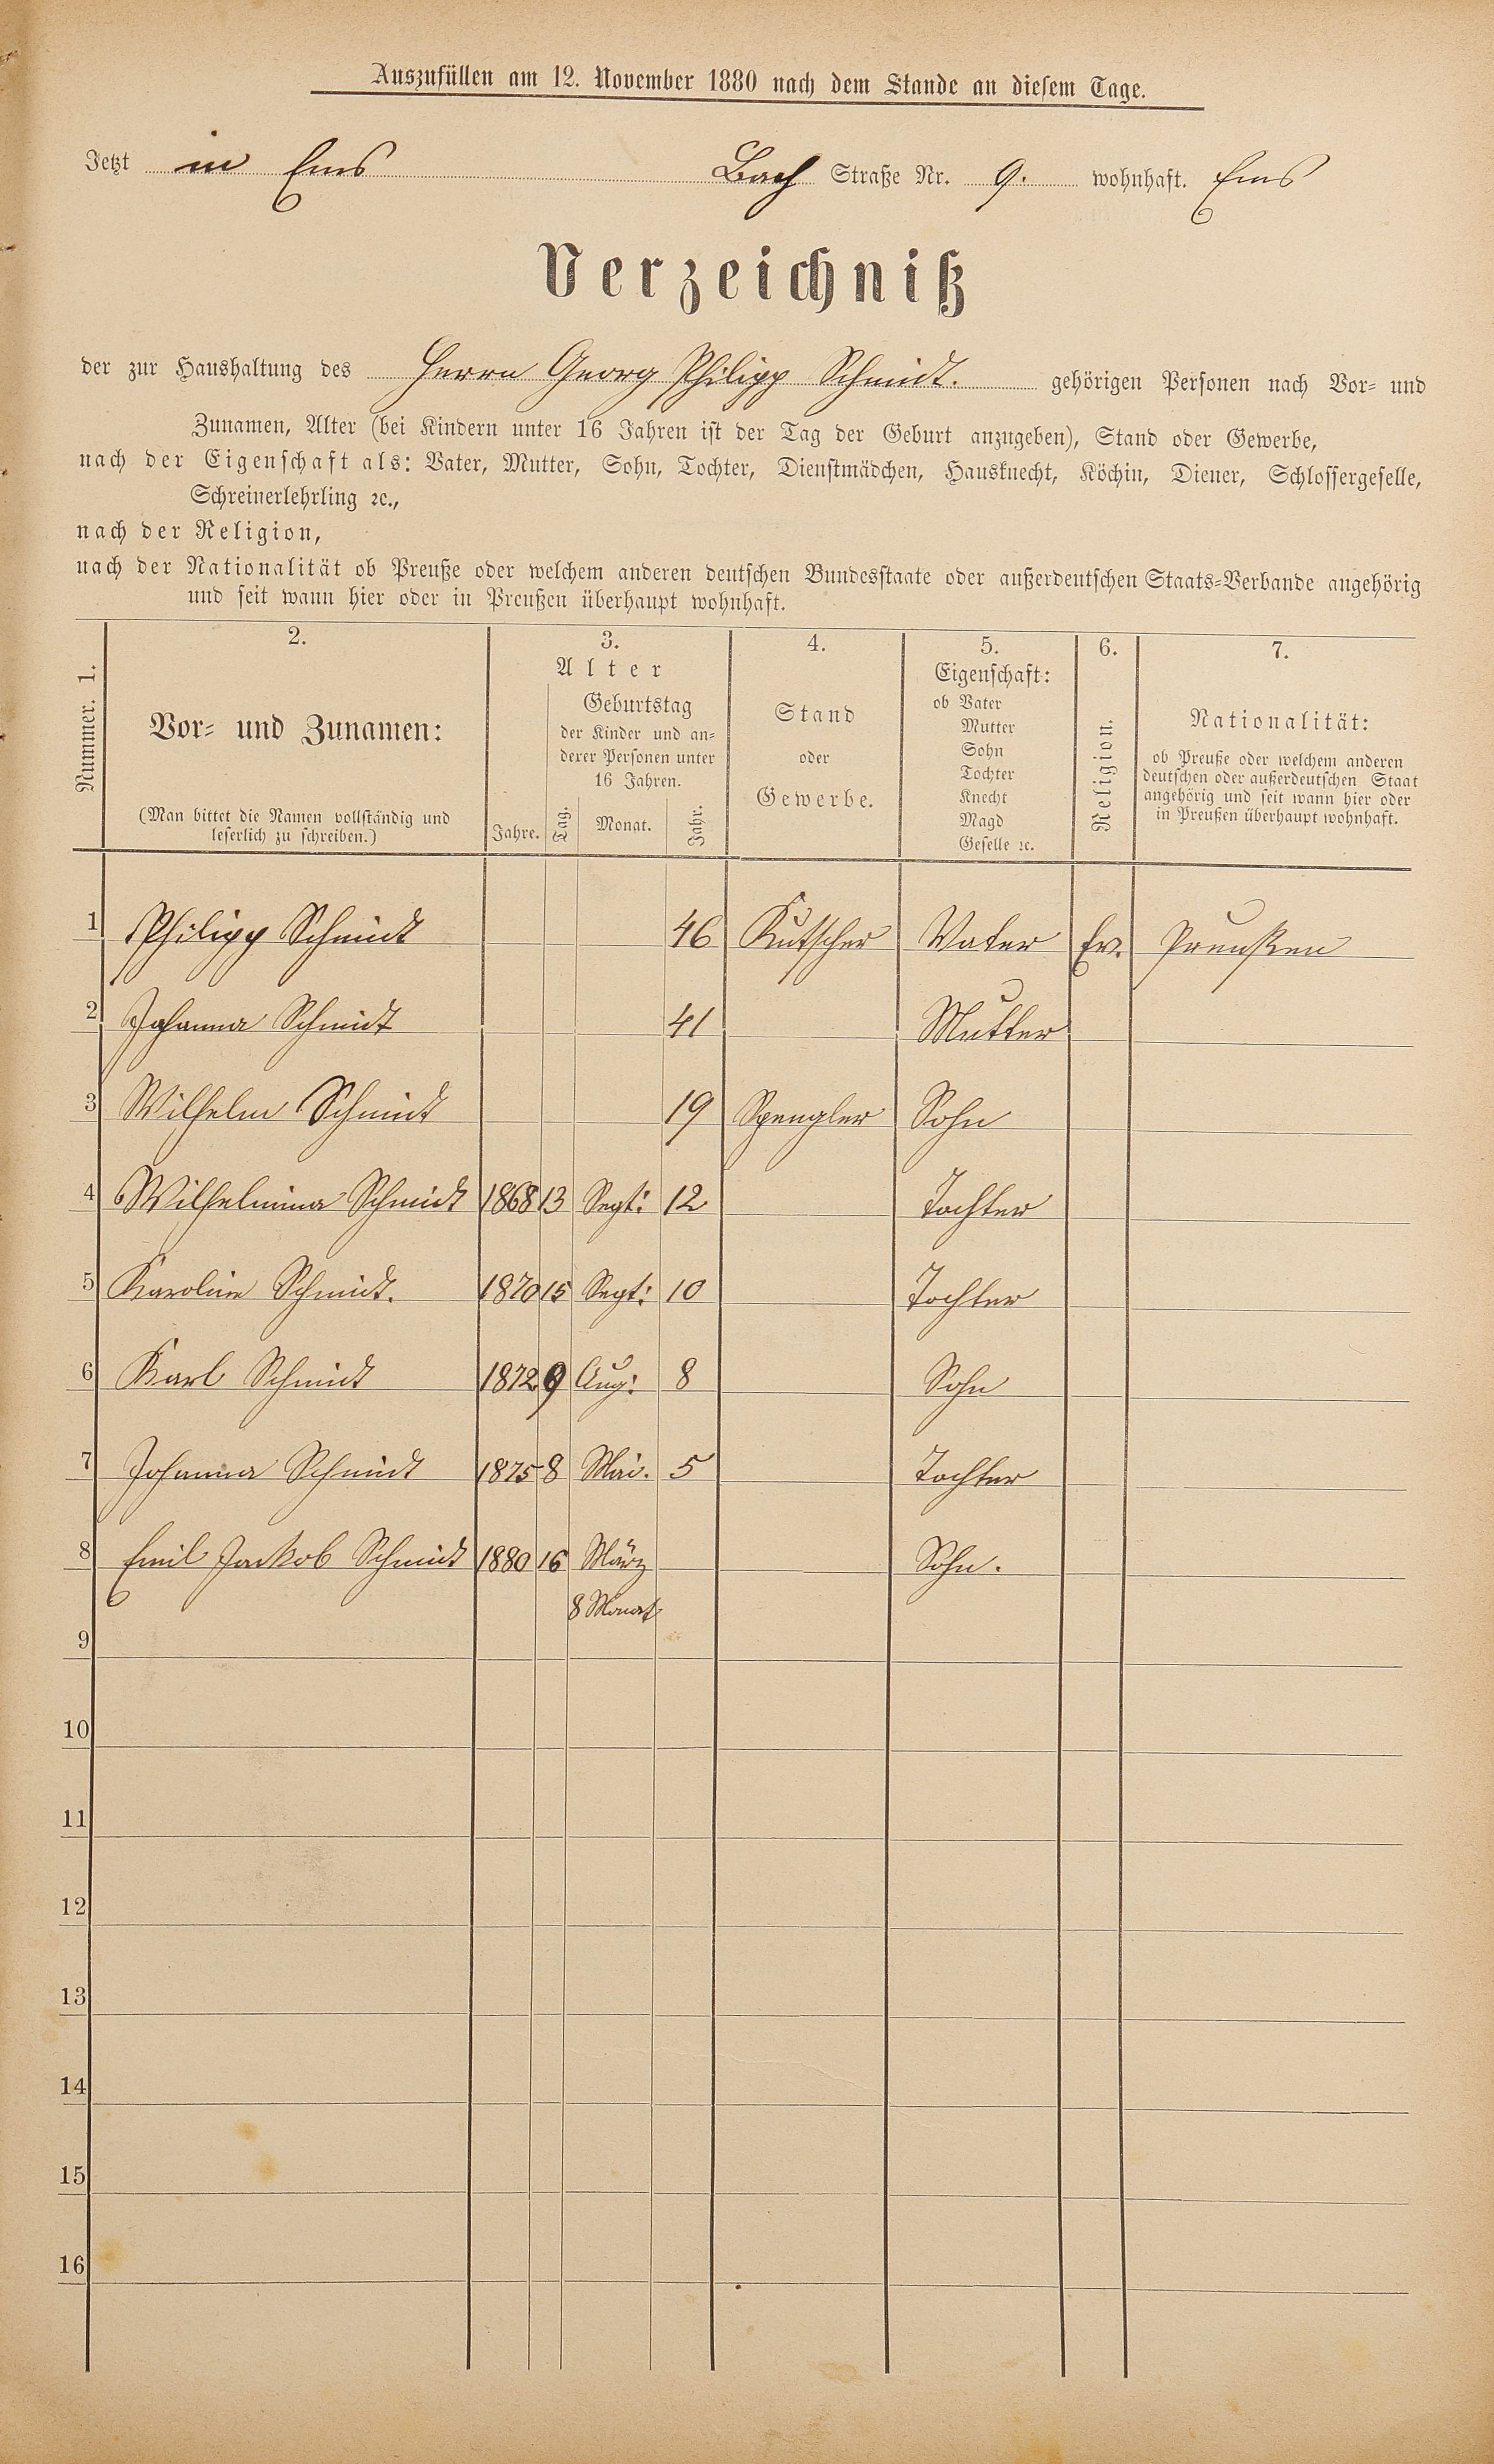 Auszufüllen am 12. November 1880 nach dem Stande an diesem Tage.
Jetzt in Ems Bach Straße Nr. 9. wohnhaft. Ems
Verzeichniß
der zur Haushaltung des Herrn Georg Philipp Schmidt. gehörigen Personen nach Vor- und
Zunamen, Alter (bei Kindern unter 16 Jahren ist der Tag der Geburt anzugeben), Stand oder Gewerbe,
nach der Eigenschaft als: Vater, Mutter, Sohn, Tochter, Dienstmädchen, Hausknecht, Köchin, Diener, Schlossergeselle,
Schreinerlehrling ꝛc.,
nach der Religion,
nach der Nationalität ob Preuße oder welchem anderen deutschen Bundesstaate oder außerdeutschen Staats-Verbande angehörig
und seit wann hier oder in Preußen überhaupt wohnhaft.
Nummer. 1.
2.
Vor- und Zunamen:
(Man bittet die Namen vollständig und
leserlich zu schreiben.)
3.
Alter
Jahre.
Geburtstag
der Kinder und an-
derer Personen unter
16 Jahren.
Tag. Monat. Jahr.
4.
Stand
oder
Gewerbe.
5.
Eigenschaft:
ob Vater
Mutter
Sohn
Tochter
Knecht
Magd
Geselle ꝛc.
6.
Religion.
7.
Nationalität:
ob Preuße oder welchem anderen
deutschen oder außerdeutschen Staat
angehörig und seit wann hier oder
in Preußen überhaupt wohnhaft.
1 Philipp Schmidt 46 Kutscher Vater Ev. Preußen
2 Johanna Schmidt 41 Mutter
3 Wilhelm Schmidt 19 Spengler Sohn
4 Wilhelmina Schmidt 1868 13 Sept: 12 Tochter
5 Karoline Schmidt. 1870 15 Sept: 10 Tochter
6 Karl Schmidt 1872 9 Aug: 8 Sohn
7 Johanna Schmidt 1875 8 Mai. 5 Tochter
8 Emil Jackob Schmidt 1880 16 März Sohn.
8 Monat
9
10
11
12
13
14
15
16